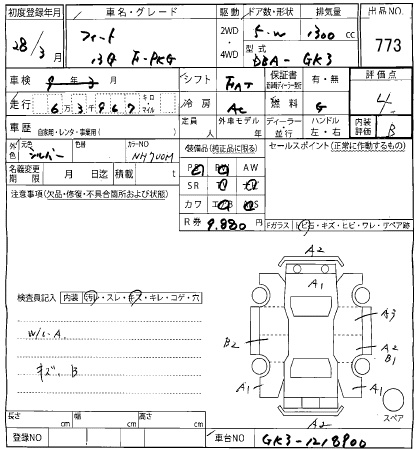 初度登録年月 車名・グレード 駆動 ドア数・形状 排気量 出品NO.
28/3月 フィット 13G F-PKG 2WD・4WD 5・W 1300cc 773
型式 DBA-GK3
車検 9年3月 シフト FAT 保証書 有・無 評価点
走行 6万3千967 キロ・マイル 冷房 AC 燃料 G 4
定員 人 外車モデル 年 ディーラー・並行 ハンドル 左・右 内装評価 B
車歴 自家用・レンタ・事業用( )
外色 元色 シルバー 色替 カラーNO NH700M
装備品(純正品に限る) セールスポイント(正常に作動するもの)
名義変更期限 月 日迄 積載 t
PS PW AW
注意事項(欠品・修復・不具合箇所および状態)
SR
カワ
R券 9,880円
Fガラス(ヒ石・キズ・ヒビ・ワレ・リペア跡
検査員記入 内装(汚レ・スレ・キズ・キレ・コゲ・穴
W/L-A
キズ、B
A2
A1
A3
B2
A2
B1
A1
A1
A2
スペア
長さ cm 幅 cm 高さ cm
登録NO 車台NO GK3-1218900